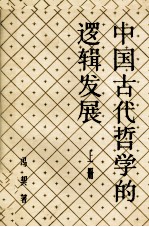 中国古代哲学的
逻辑发展
上册
冯契著